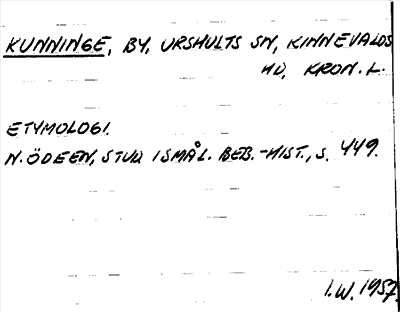 KUNNINGE, BY, URSHULTS SN, KINNEVALDS
HD, KRON. L.
ETYMOLOGI.
N. ÖDEEN, STUD. I SMÅL. BEB.-HIST., S. 449.
I.W. 1957.